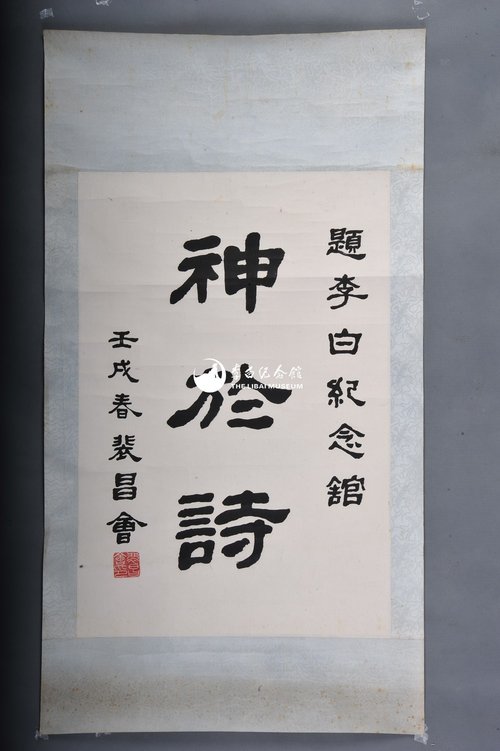 題李白紀念舘
神於詩
壬戌春裴昌會
李白纪念館
THE LIBAI MUSEUM